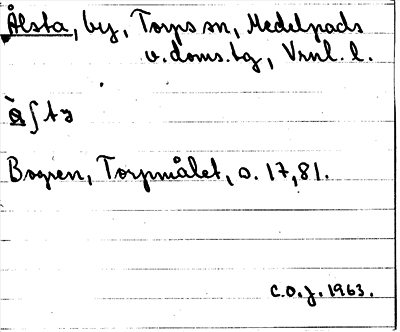 Ålsta, by, Torps sn, Medelpads
v. doms. bg, Vrnl. l.
Bogren, Torpmålet, s. 17, 81.
C.O.J. 1963.